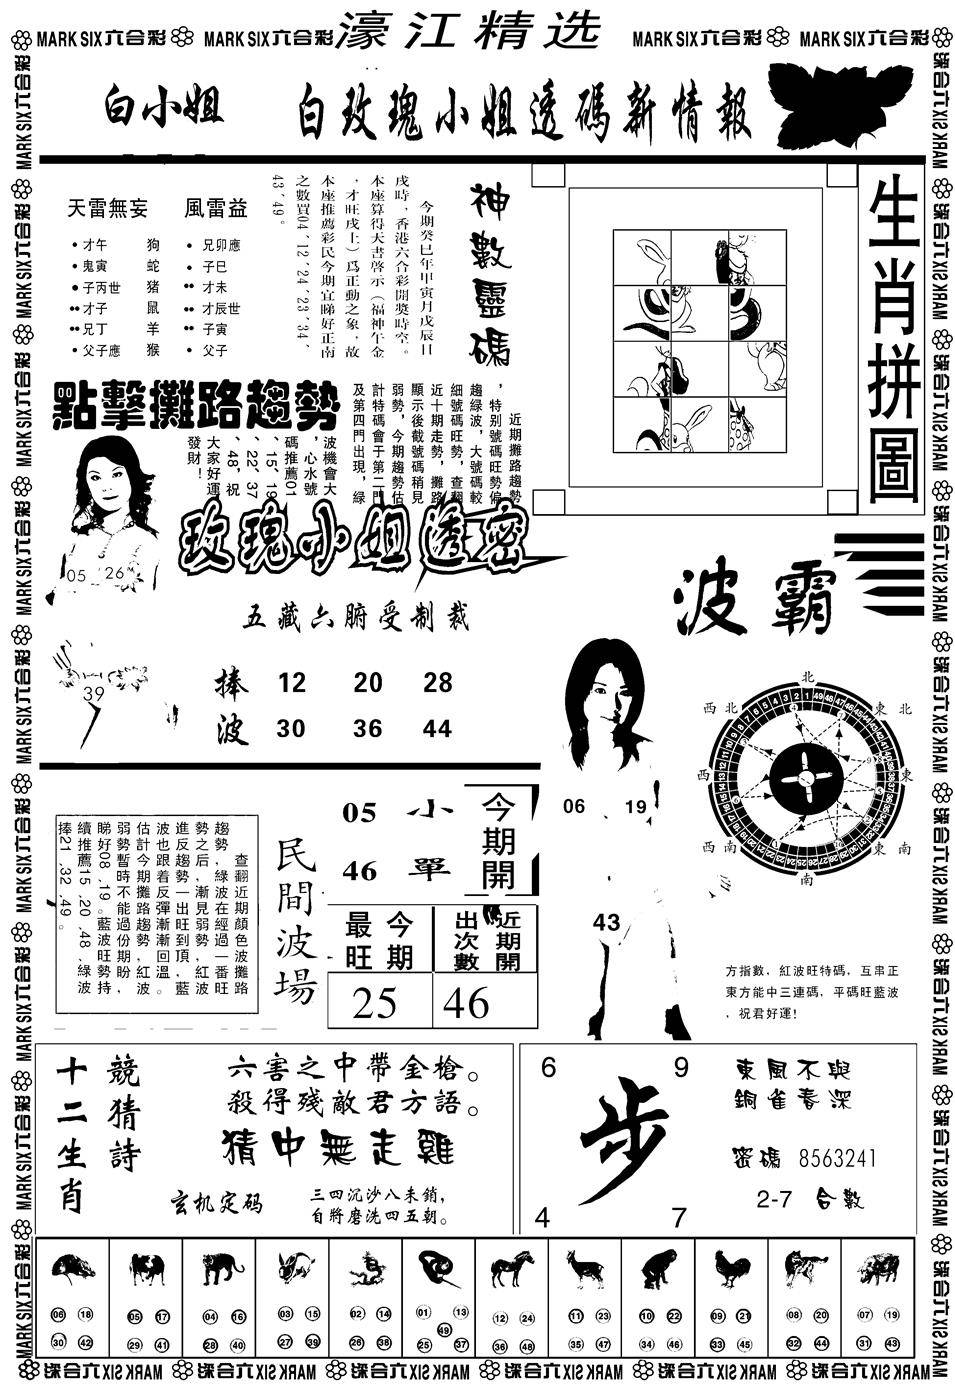 濠江精选
MARK SIX六合彩 MARK SIX六合彩 MARK SIX六合彩 MARK SIX六合彩
白小姐 白玫瑰小姐透碼新情報
天雷無妄 風雷益
•才午 狗 •兄卯應
•鬼寅 蛇 •子巳
●子丙世 猪 ••才未
••才子 鼠 ••才辰世
••兄丁 羊 ••子寅
•父子應 猴 •父子
今期癸巳年甲寅月戊辰日
戌時，香港六合彩開獎時空。
本座算得天書啓示（福神午金
，才旺戌上）爲正動之象，故
本座推薦彩民今期宜睇好正南
之數買04、12、24、23、34、
43、49。
神數靈碼
生肖拼圖
點擊攤路趨勢
近期攤路趨勢
，特別號碼旺勢偏
趨綠波，大號碼較
細號碼旺勢，查翻
近十期走勢，攤路
顯示後截號碼稍見
弱勢，今期趨勢估
計特碼會于第二門
及第四門出現，綠
波機會大
，心水號
碼推薦01
、15、19
、22、37
、48，祝
大家好運
發財！
05 26
39
玫瑰小姐透密
五藏六腑受制裁
捧 12 20 28
波 30 36 44
波霸
北
西北 東北
西 東
西南 東南
南
06 19
43
方指數，紅波旺特碼，互串正
東方能中三連碼，平碼旺藍波
，祝君好運！
查翻近期顏色波攤路
趨勢，綠波在經過一番旺
勢之后，漸見弱勢，紅波
進反跟趨勢一出旺到頂，藍
波也跟着反彈漸漸回溫。
估計今期攤路趨勢紅波
弱勢暫時不能過份期盼，
睇好08、19。藍波旺勢持
續推薦15、20、48，綠波
捧21、32、49。
民間波場
05 小
46 單
今期開
今期最旺
近期開出次數
25 46
十二生肖
競猜詩
六害之中帶金槍。
殺得殘敵君方語。
猜中無走雞
玄机定码
三四沉沙八未銷，
自將磨洗四五朝。
6 9
步
4 7
東風不與
銅雀春深
密碼 8563241
2-7 合數
06 18 05 17 04 16 03 15 02 14 01 13 12 24 11 23 10 22 09 21 08 20 07 19
49
30 42 29 41 28 40 27 39 26 38 25 37 36 48 35 47 34 46 33 45 32 44 31 43
MARK SIX六合彩 MARK SIX六合彩 MARK SIX六合彩 MARK SIX六合彩 MARK SIX六合彩 MARK SIX六合彩